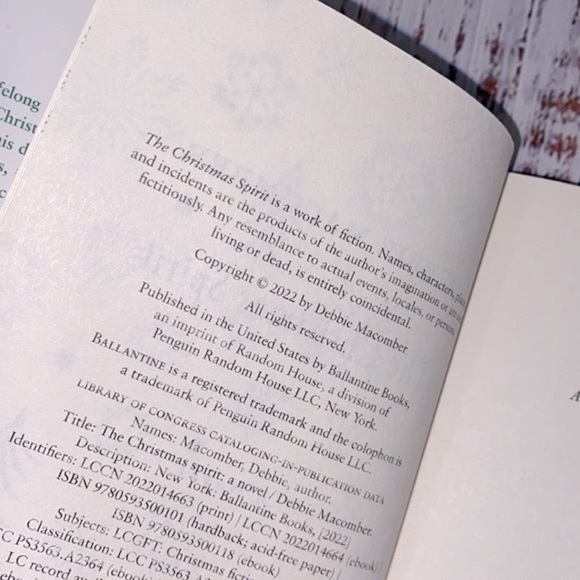 felong
Christ
his d
s,
The Christmas Spirit is a work of fiction. Names, characters,
and incidents are the products of the author's imagination or are
fictitiously. Any resemblance to actual events, locales, or
living or dead, is entirely coincidental.
Copyright © 2022 by Debbie Macomber
All rights reserved.
Published in the United States by Ballantine Books,
an imprint of Random House, a division of
Penguin Random House LLC, New York.
BALLANTINE is a registered trademark and the colophon is
a trademark of Penguin Random House LLC.
LIBRARY OF CONGRESS CATALOGING-IN-PUBLICATION DATA
Names: Macomber, Debbie, author.
Title: The Christmas spirit: a novel / Debbie Macomber.
Description: New York: Ballantine Books, [2022]
Identifiers: LCCN 2022014663 (print) | LCCN 2022014664 (ebook) |
ISBN 9780593500101 (hardback; acid-free paper) |
ISBN 9780593500118 (ebook)
Subjects: LCGFT: Christmas
Classification: LCC PS3563.A2364
PS3563.A2364
LC record
A